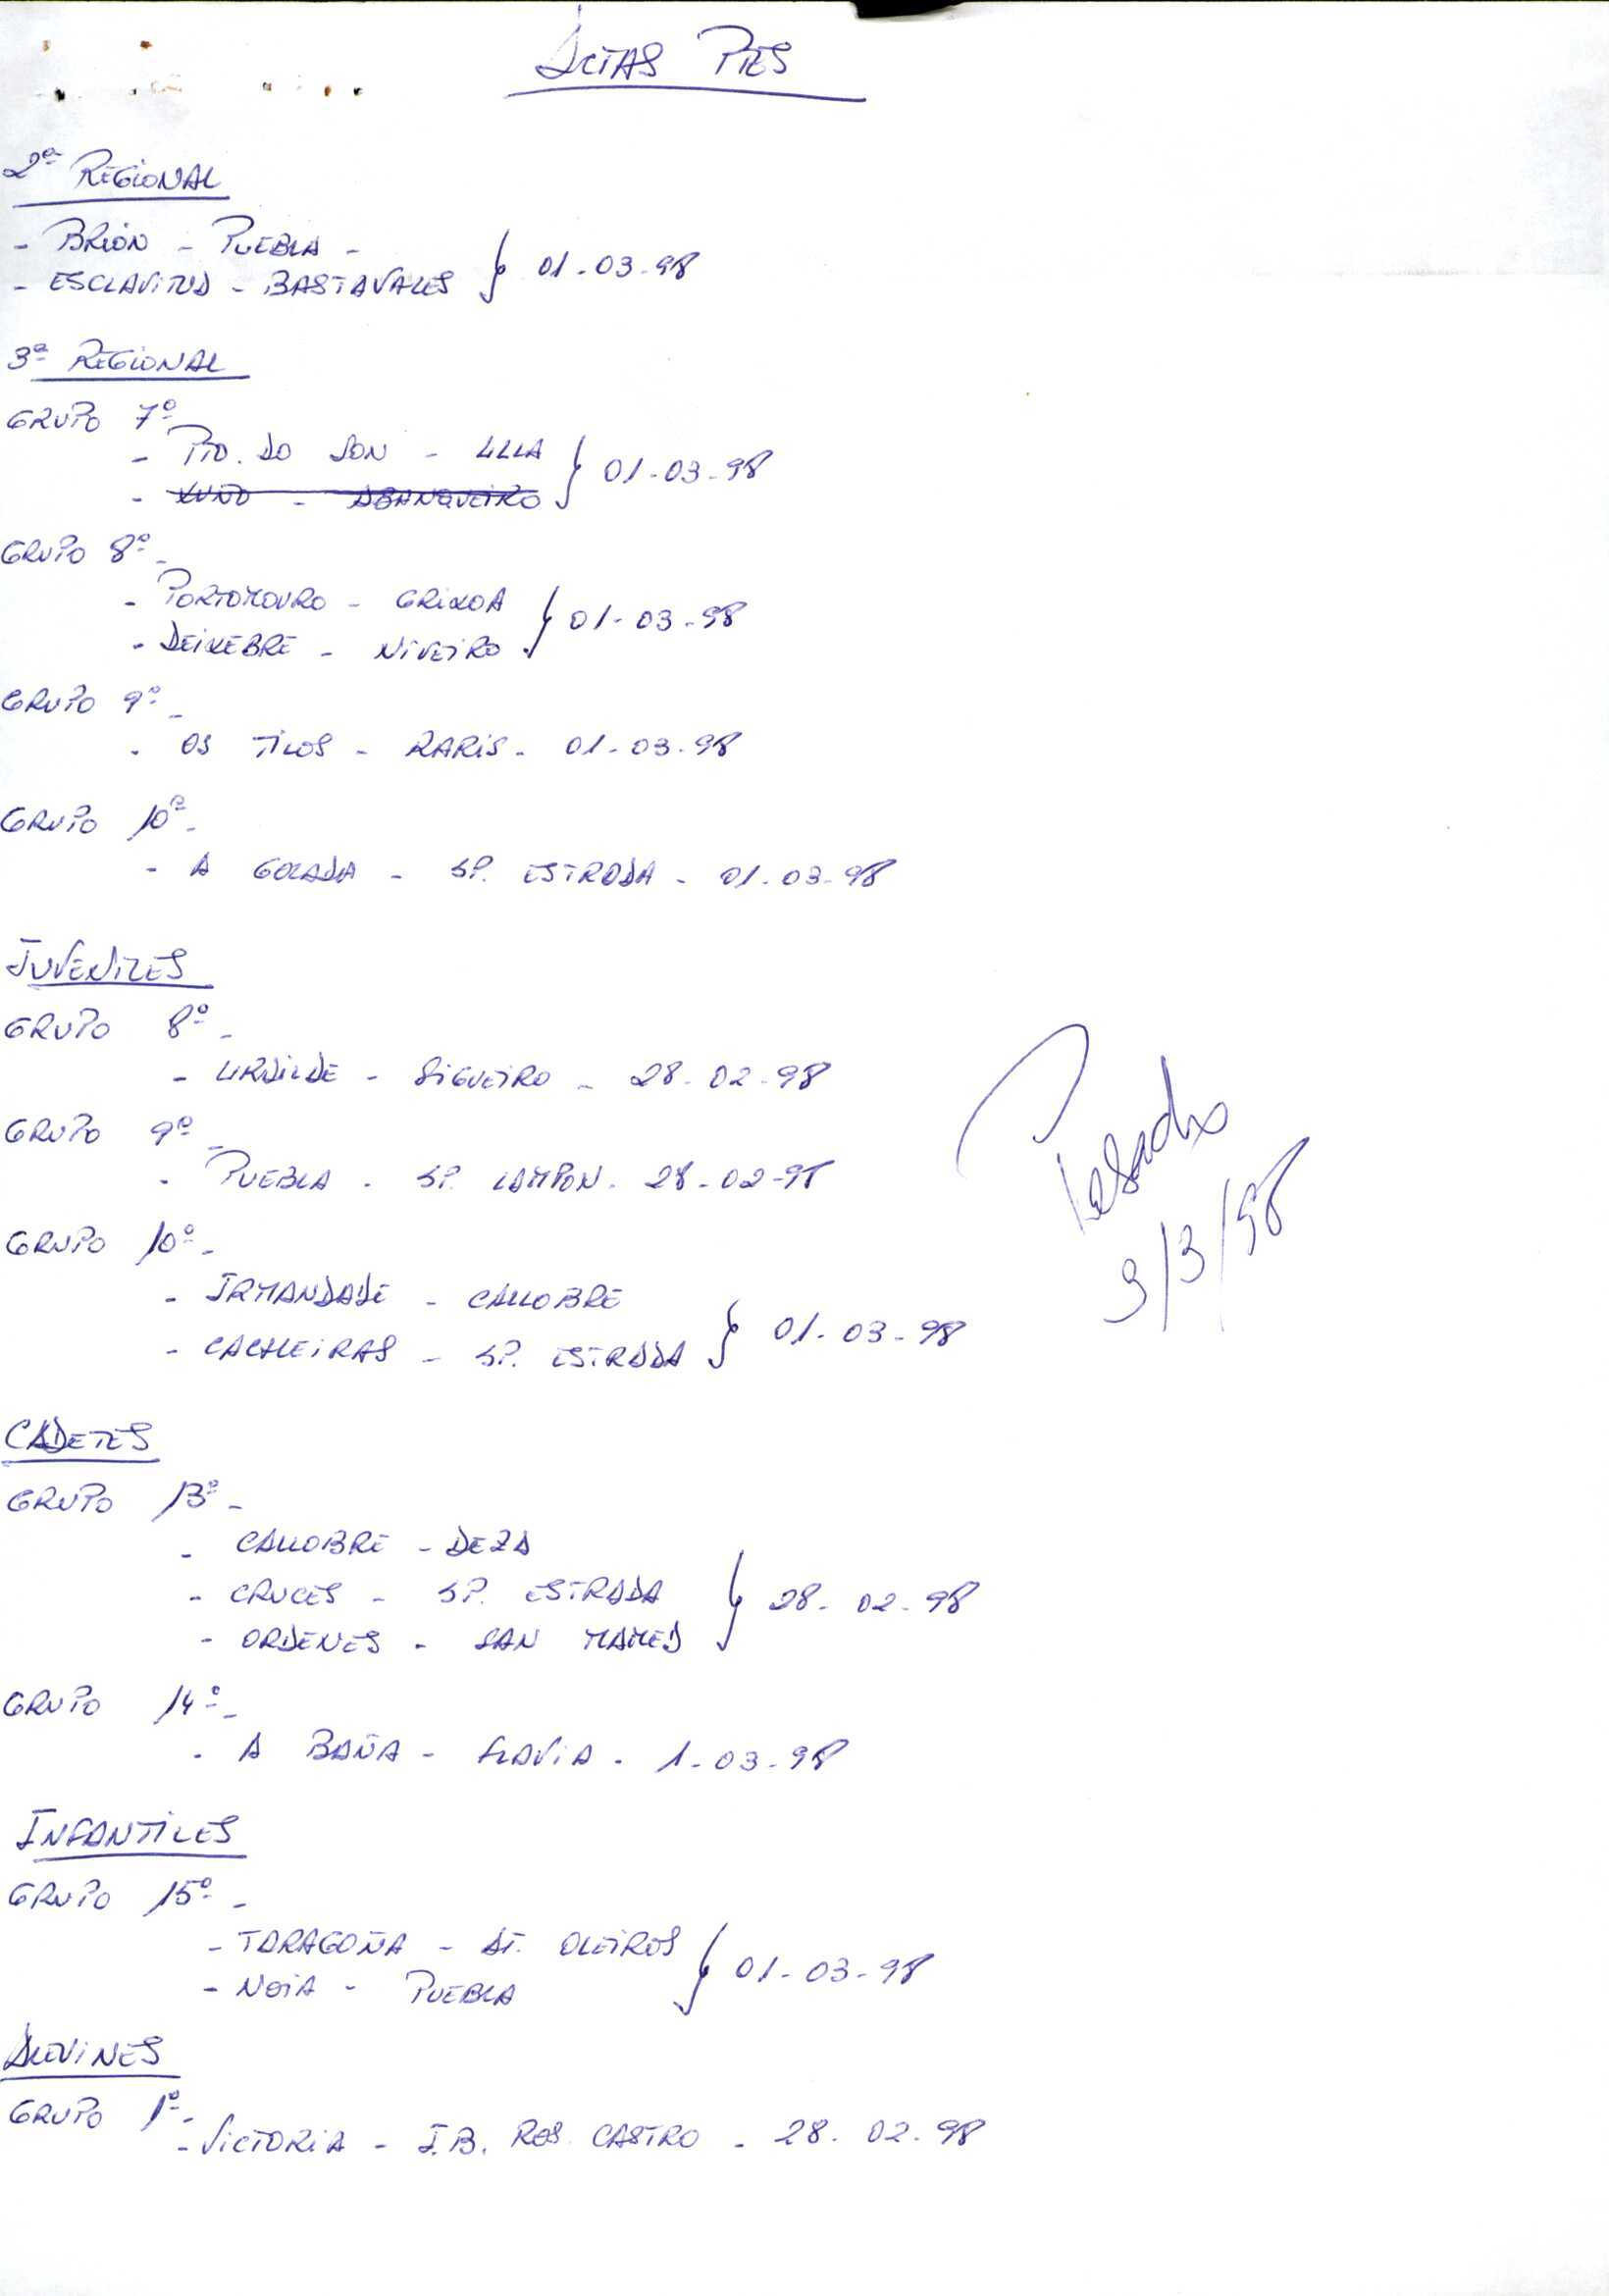 ACTAS PTES
2ª REGIONAL
- BRION - PUEBLA -
- ESCLAVITUD - BASTAVALES } 01-03-98
3ª REGIONAL
GRUPO 7º
- PTO. DO SON - ULLA } 01-03-98
- XUÑO - ABANQUEIRO
GRUPO 8º -
- PORTOMOURO - GRIXOA } 01-03-98
- DEIXEBRE - NIVEIRO
GRUPO 9º -
- OS TILOS - RARIS - 01-03-98
GRUPO 10º -
- A GOLADA - SP. ESTRADA - 01-03-98
JUVENILES
GRUPO 8º -
- URDILDE - SIGUEIRO - 28-02-98
GRUPO 9º -
- PUEBLA - SP. LAMPON - 28-02-98
GRUPO 10º -
- IRMANDADE - CALLOBRE
- CACHEIRAS - SP. ESTRADA } 01-03-98
Pasado
3/3/98
CADETES
GRUPO 13º -
- CALLOBRE - DEZA
- CRUCES - SP. ESTRADA } 28-02-98
- ORDENES - SAN MAMED
GRUPO 14º -
- A BAÑA - FLAVIA - 1-03-98
INFANTILES
GRUPO 15º -
- TARAGOÑA - AT. OLEIROS } 01-03-98
- NOIA - PUEBLA
ALEVINES
GRUPO 1º -
- VICTORIA - I.B. ROS. CASTRO - 28-02-98